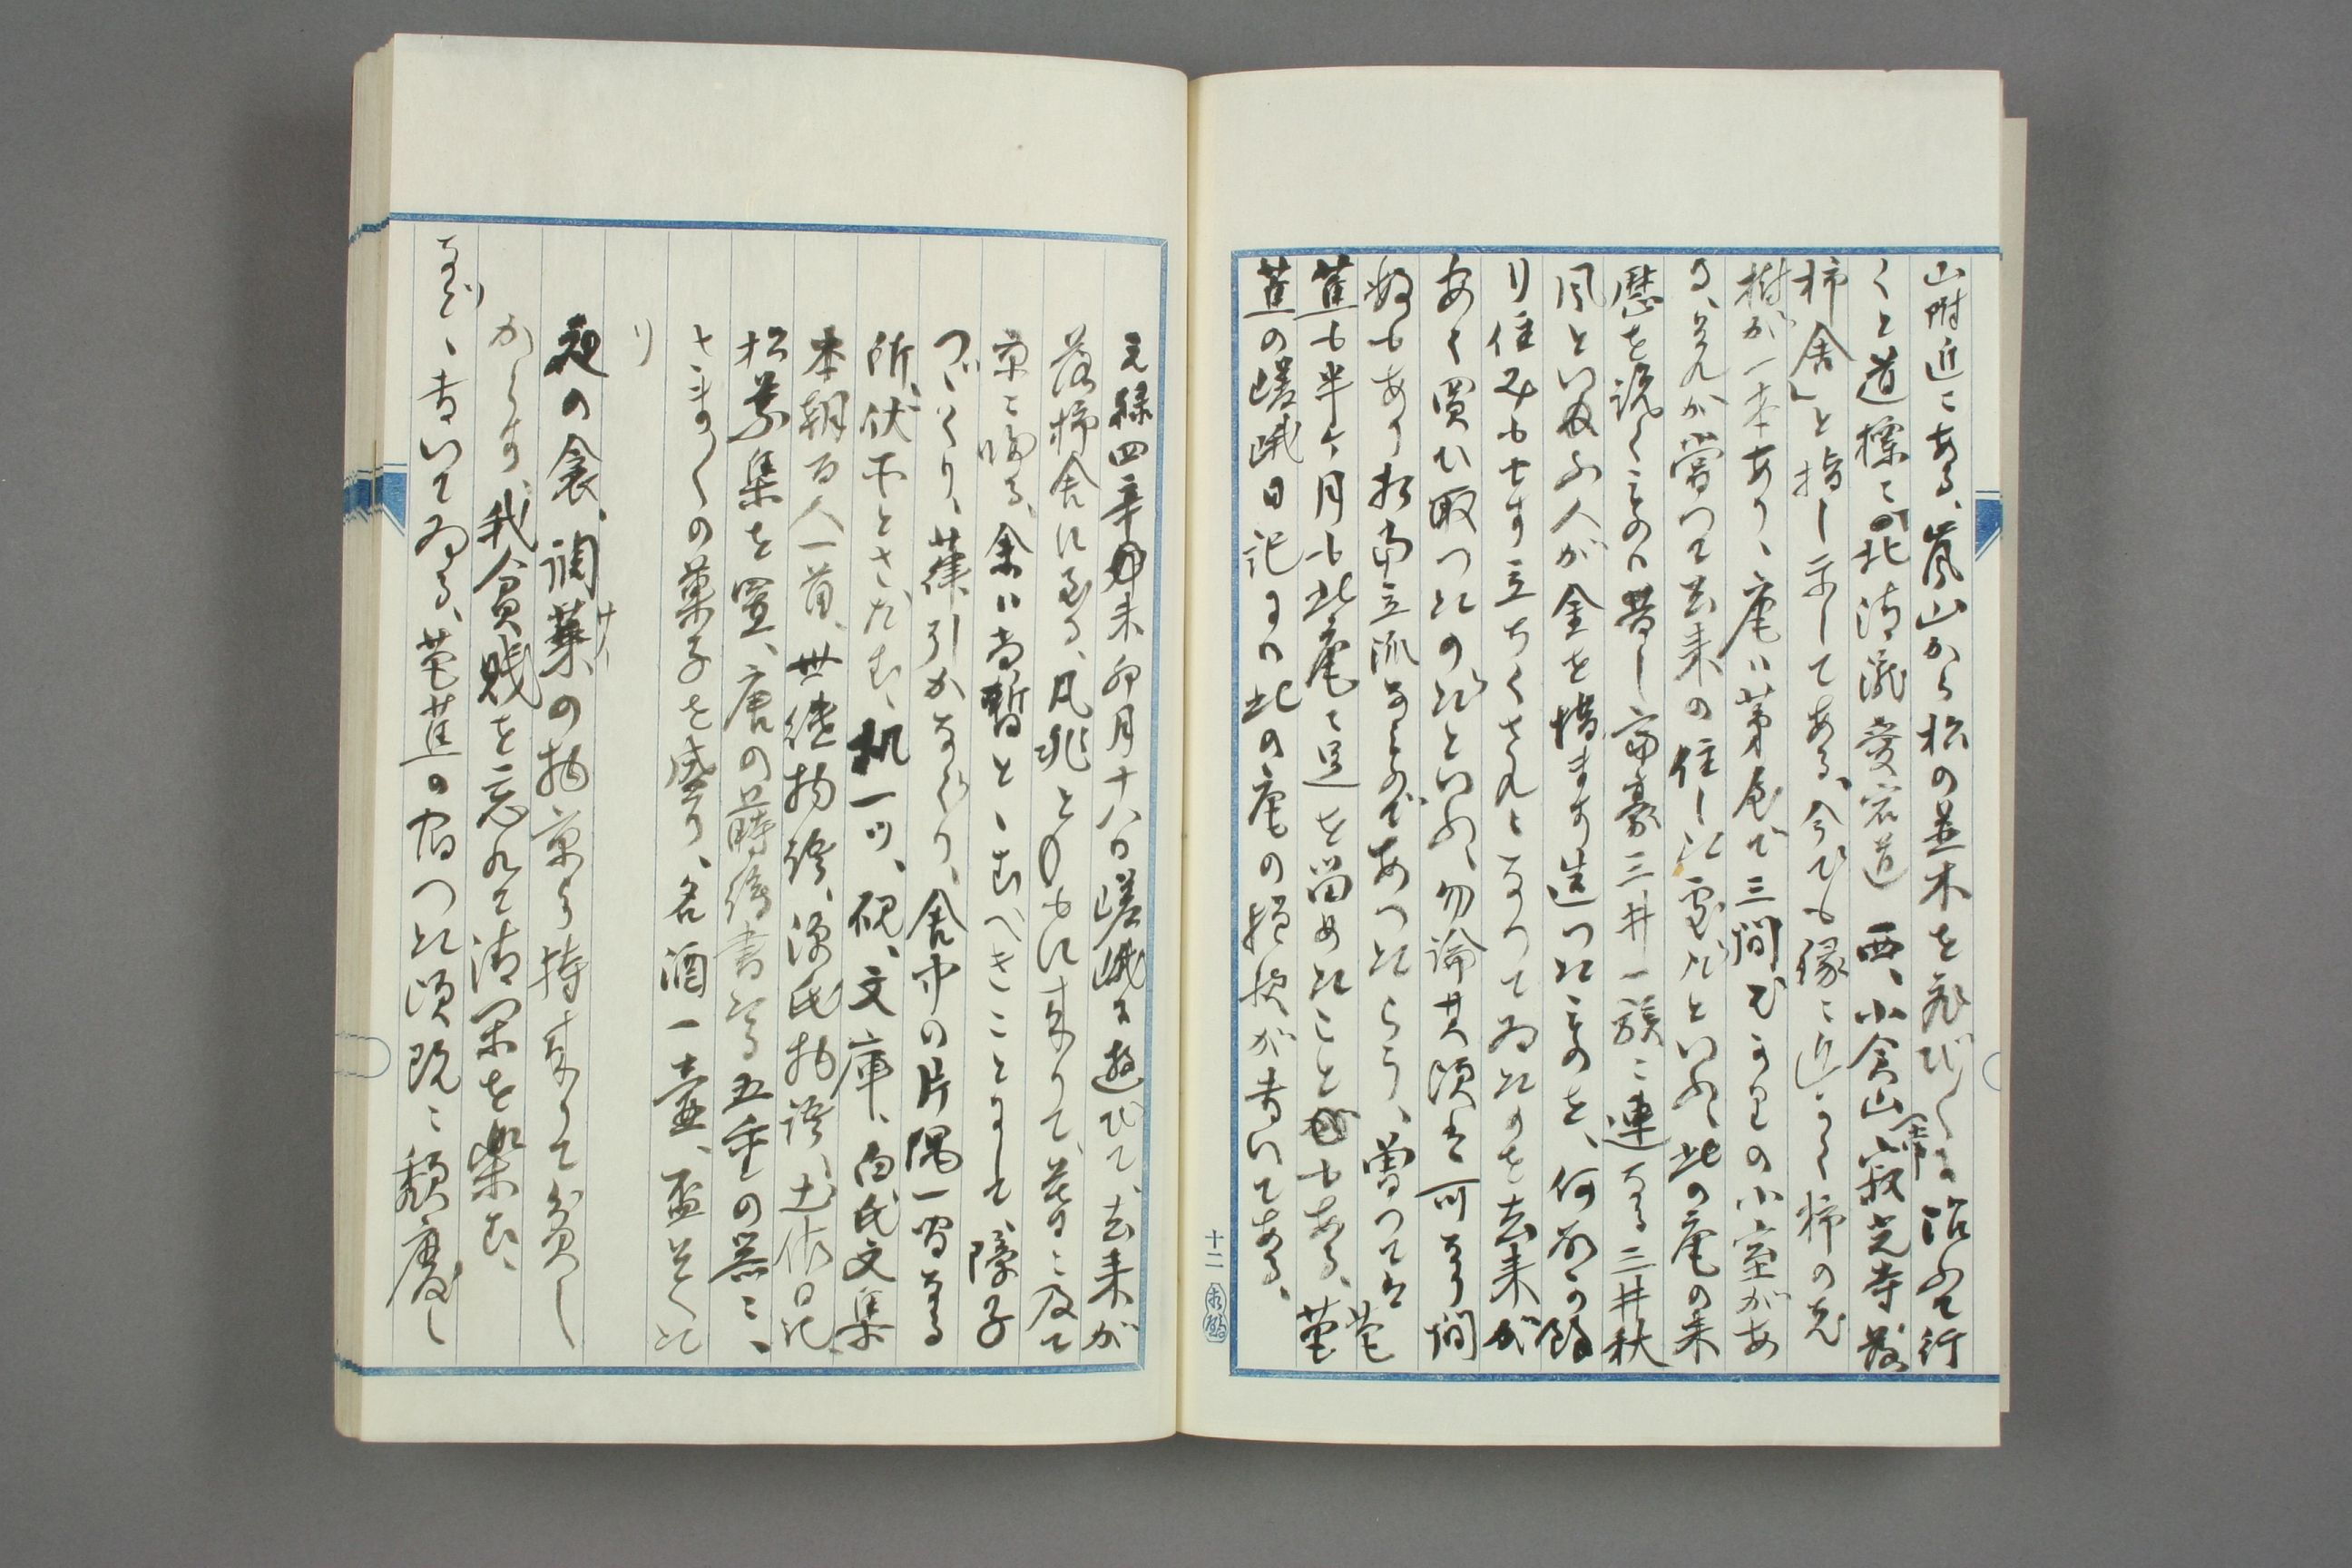 山附近にある、嵐山から松の並木を飛び〳〵に沿ふて行
くと道標に「北清滝愛宕道 西、小倉山 二尊院 寂光寺 落
柿舎」と指し示してある、今でも縁に近かく柿の老
樹が一本あり、庵は茅屋で三間ばかりの小室があ
る、是れが嘗つて去来の住した家だといふ、此の庵の来
歴を説くものは昔し富豪三井一族に連なる三井秋
風といふ人が金を惜まず造つたものを、何故か餘
り住みもせず立ちくされとなつてゐたのを去来が
安く買ひ取つたのだといふ、勿論其頃は可なり間
数もあり相当立派なものであつたらう、嘗つては芭
蕉も半ヶ月も此庵に足を留めたこともある、芭
蕉の嵯峨日記には此の庵の模様が書いてある、
十二
元禄四辛未卯月十八日嵯峨に遊びて、去来が
落柿舎に至る、凡兆ともに来りて、暮に及て
京に帰る、余は尚暫とゞむべきことにしも、障子
つゞくり、葎引かなぐり、舎中の片隅一間なる
所、伏戸とさだむ、机一ツ、硯、文庫、白氏文集
本朝百人一首、世継物語、源氏物語、土佐日記
松葉集を置、唐の蒔絵書写る五重の器に、
さま〴〵の菓子を盛り、名酒一壷、盃そへた
り
夜の衾、調菜の物京より持来りて貧し
サイ
からず、我貧賎を忘れて清閑を楽む、
など、書いてゐる、芭蕉の宿つた頃既に頽廃し